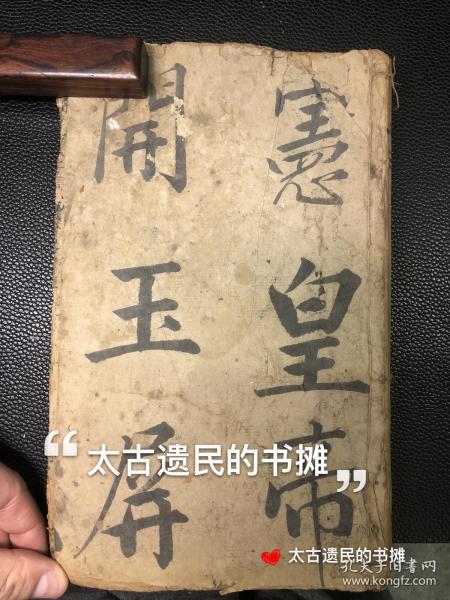 憲皇帝
開玉屏
“太古遗民的书摊”
太古遗民的书摊
孔夫子旧书网
www.kongfz.com